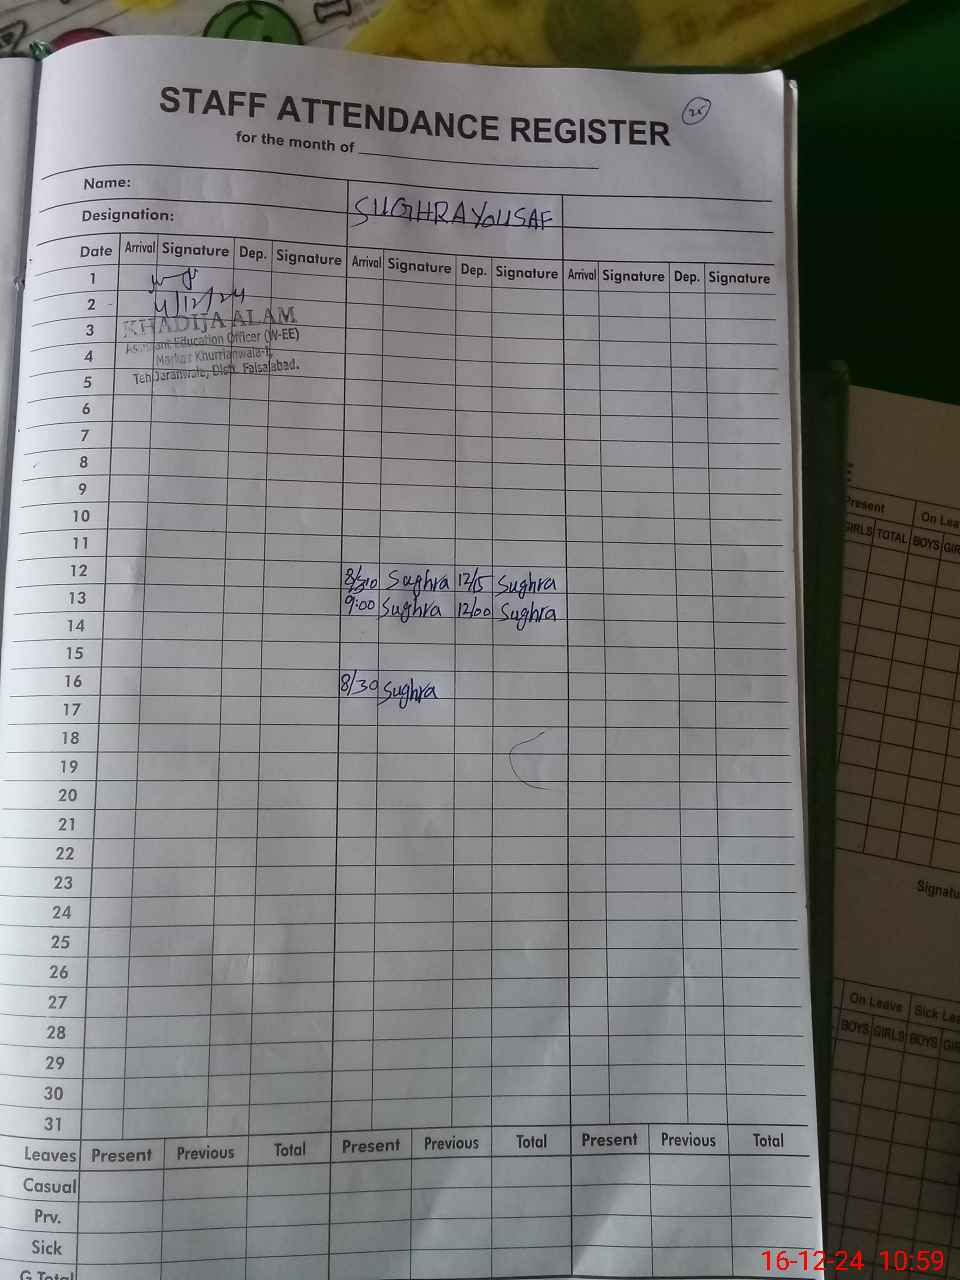 STAFF ATTENDANCE REGISTER
25
for the month of
Name:
SUGHRA YOUSAF
Designation:
Date Arrival Signature Dep. Signature Arrival Signature Dep. Signature Arrival Signature Dep. Signature
1
2 4/12/24
3 KHADIJA ALAM
Assistant Education Officer (W-EE)
4 Markaz Khurrianwala-I,
5 Teh Jaranwala, Distt. Faisalabad.
6
7
8
9
10
11
12 Sughra 12/15 Sughra
13 9:00 Sughra 12/00 Sughra
14
15
16 8/30 Sughra
17
18
19
20
21
22
23
24
25
26
27
28
29
30
31
Leaves Present Previous Total Present Previous Total Present Previous Total
Casual
Prv.
Sick
G.Total
Present On Lea
GIRLS TOTAL BOYS GIR
Signatu
On Leave Sick Lea
BOYS GIRLS BOYS GIR
16-12-24 10:59